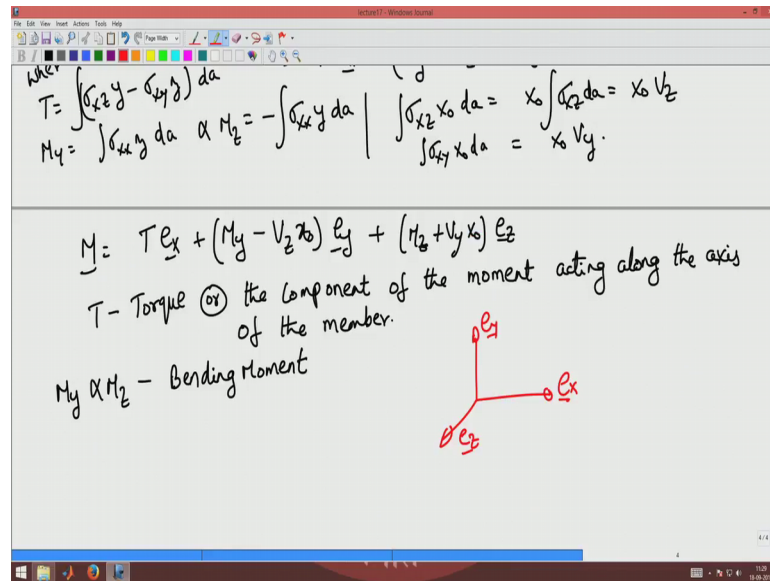 lecture17 - Windows Journal
File Edit View Insert Actions Tools Help
Page Width
B I
T = ∫(σxz y - σxy z) da
My = ∫σxx z da & Mz = -∫σxx y da | ∫σxz x₀ da = x₀ ∫σxz da = x₀ Vz
∫σxy x₀ da = x₀ Vy.
M = T ex + (My - Vz x₀) ey + (Mz + Vy x₀) ez
T - Torque (or) the component of the moment acting along the axis
of the member.
My & Mz - Bending Moment
ey
ex
ez
4/4
4
11:29